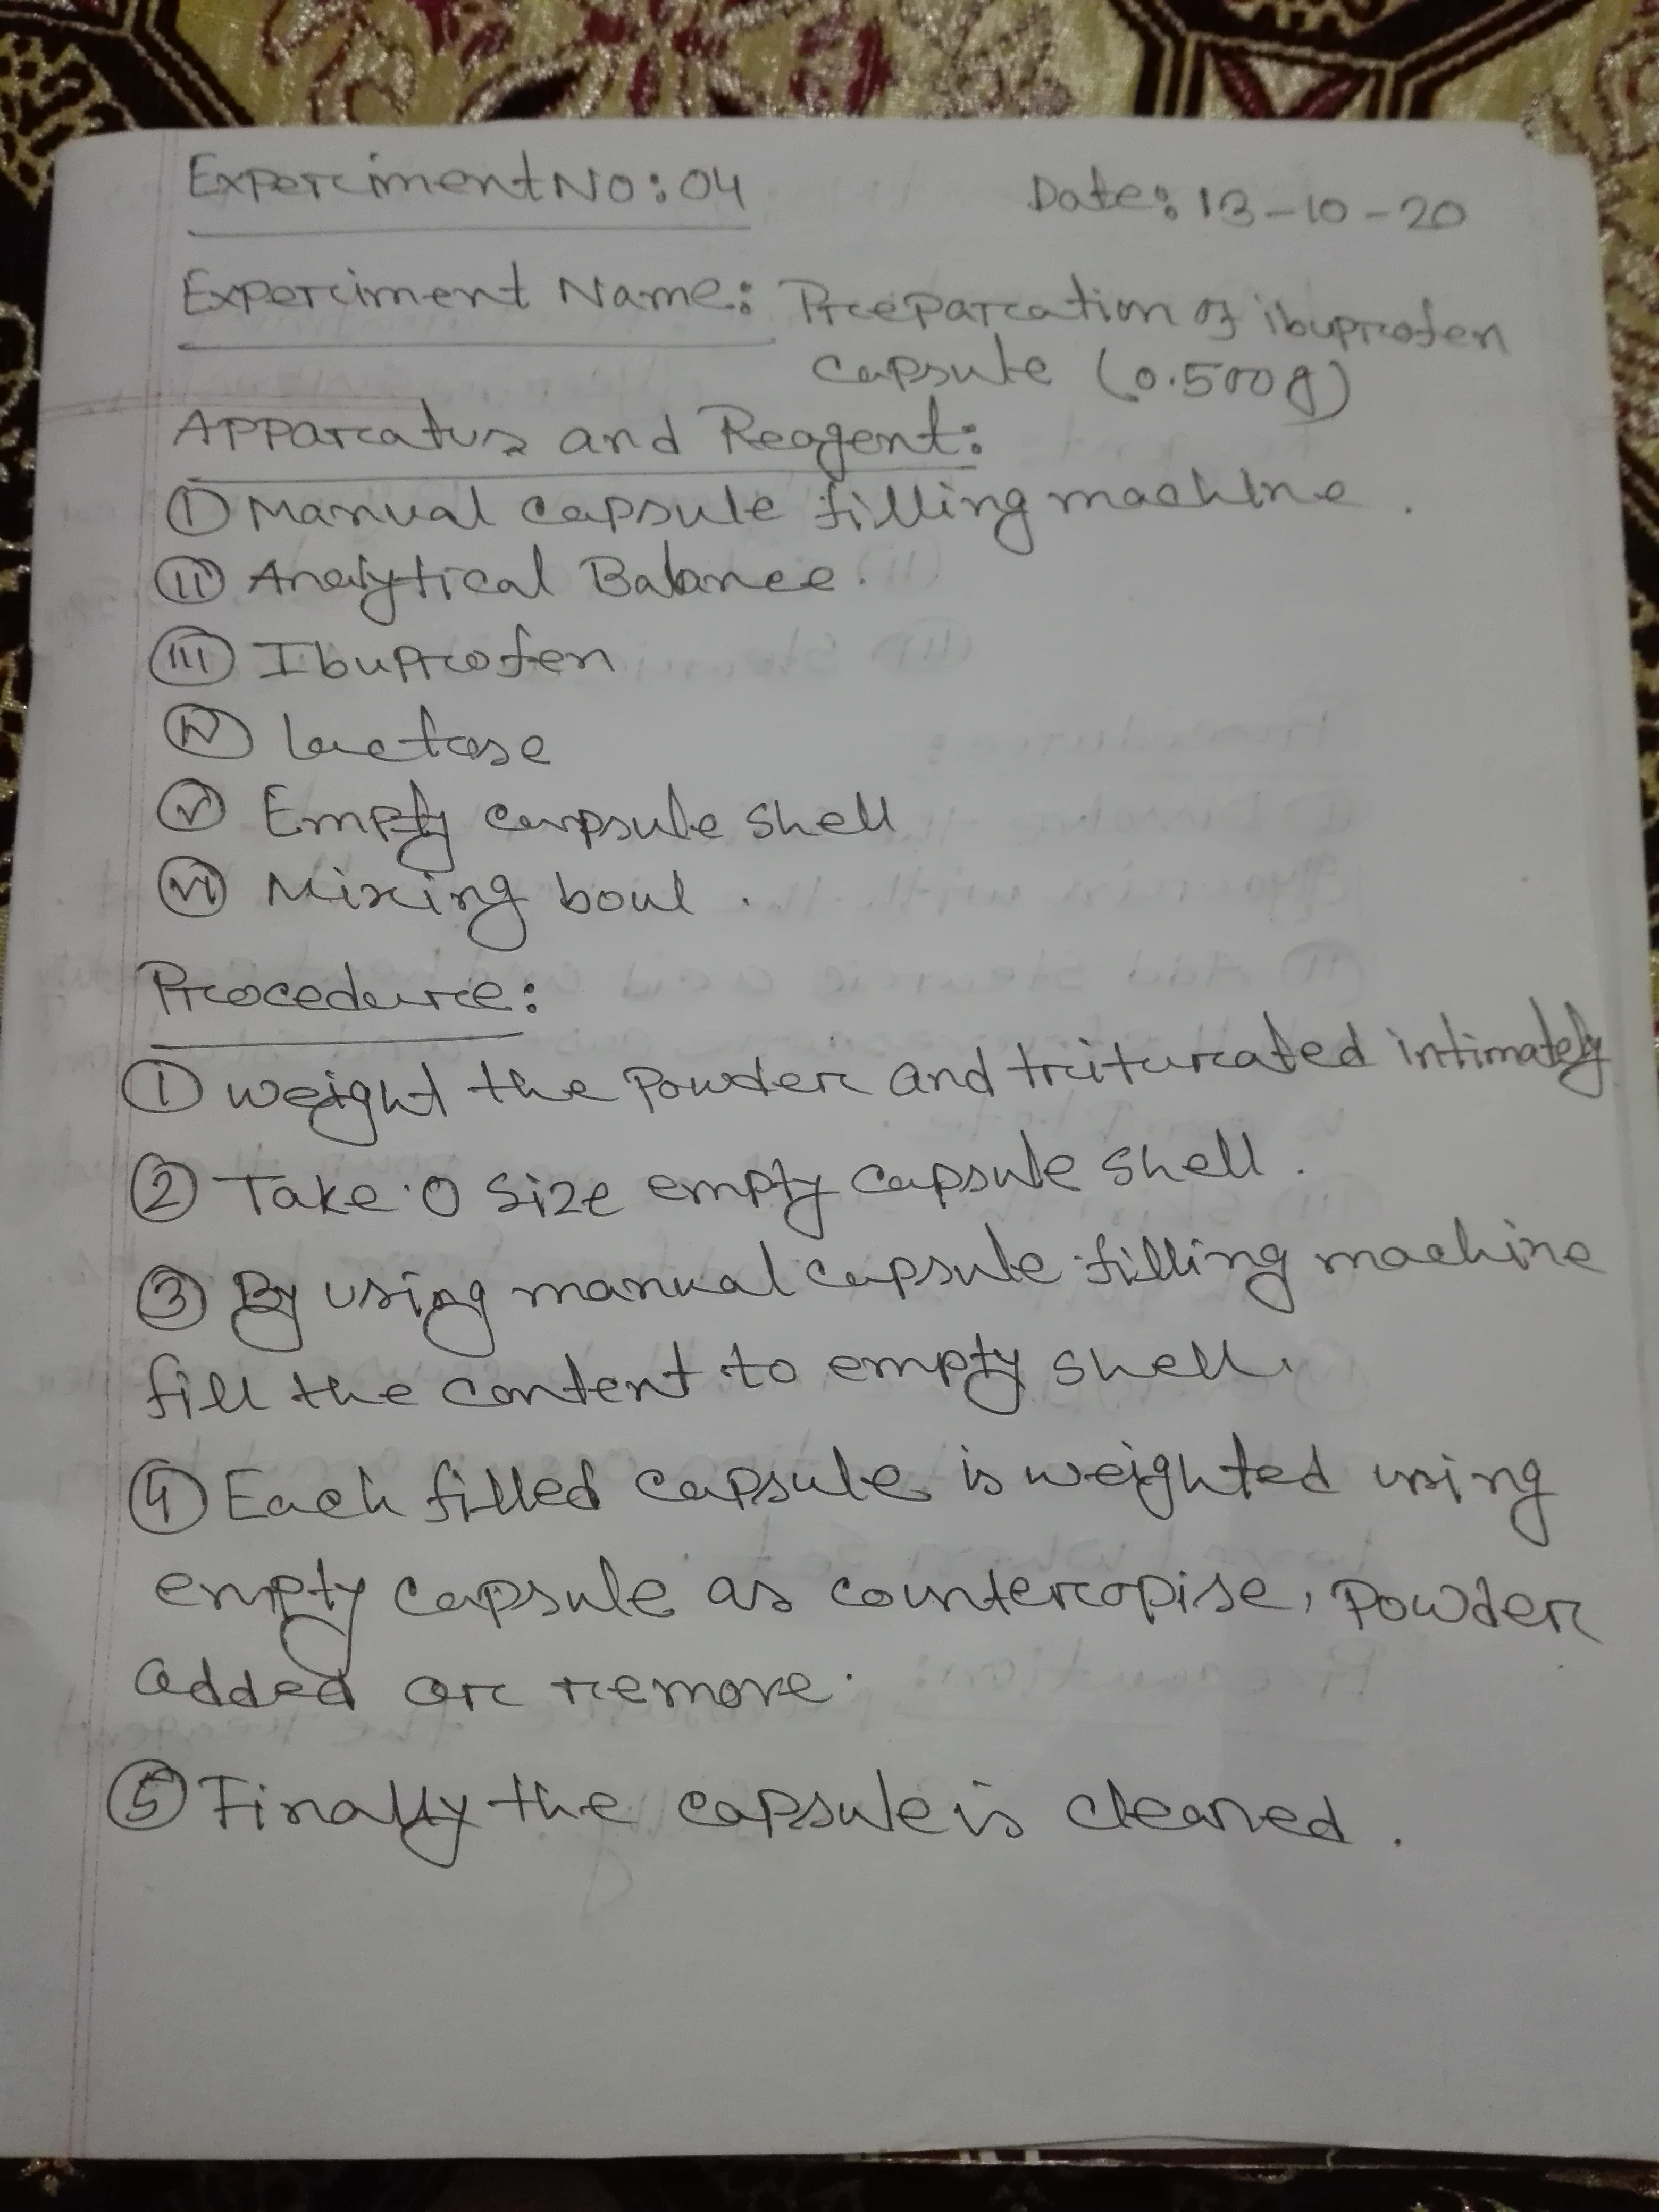 Experiment No: 04
Date: 13-10-20
Experiment Name: Preparation of ibuprofen
capsule (0.500g)
Apparatus and Reagent:
(I) Manual capsule filling machine.
(II) Analytical Balance.
(III) Ibuprofen
(IV) lactose
(V) Empty capsule shell
(VI) Mixing boul.
Procedure:
(1) weight the powder and triturated intimately
(2) Take 0 size empty capsule shell.
(3) By using manual capsule filling machine
fill the content to empty shell.
(4) Each filled capsule is weighted using
empty capsule as countercopise, powder
added or remove.
(5) Finally the capsule is cleaned.